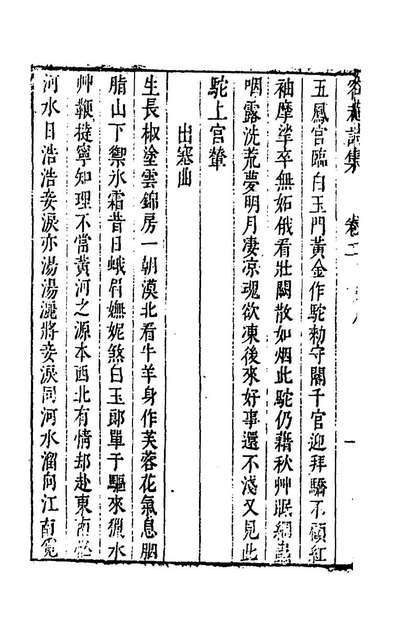 詩集 卷二
五鳳宫臨白玉門黃金作駝勑守閽千官迎拜驕不顧紅
袖摩挲卒無妬俄看壯闕散如烟此駝仍藉秋艸眠蟲
咽露洗荒夢明月凄凉魂欲凍後來好事還不淺又見此
駝上宫輦
出塞曲
生長椒塗雲錦房一朝漠北看牛羊身作芙蓉花氣息胭
脂山下禦氷霜昔日蛾眉嫵妮煞白玉郎單于驅來獵水
艸鞭撻寧知理不當黃河之源本西北有情却赴東南
河水日浩浩妾淚亦湯湯灑將妾淚同河水溜向江南寃